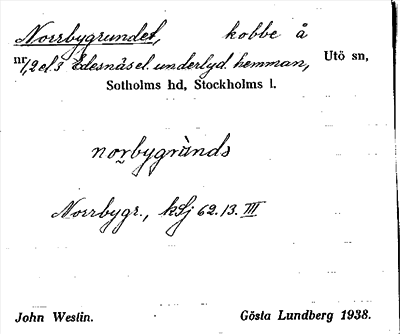 Norrbygrundet, kobbe å
nr 1,2 el. 3 Edesnäs el. underlyd. hemman, Utö sn,
Sotholms hd, Stockholms l.
norbygrùnds
Norrbygr., kSj 62.13. III
John Westin. Gösta Lundberg 1938.